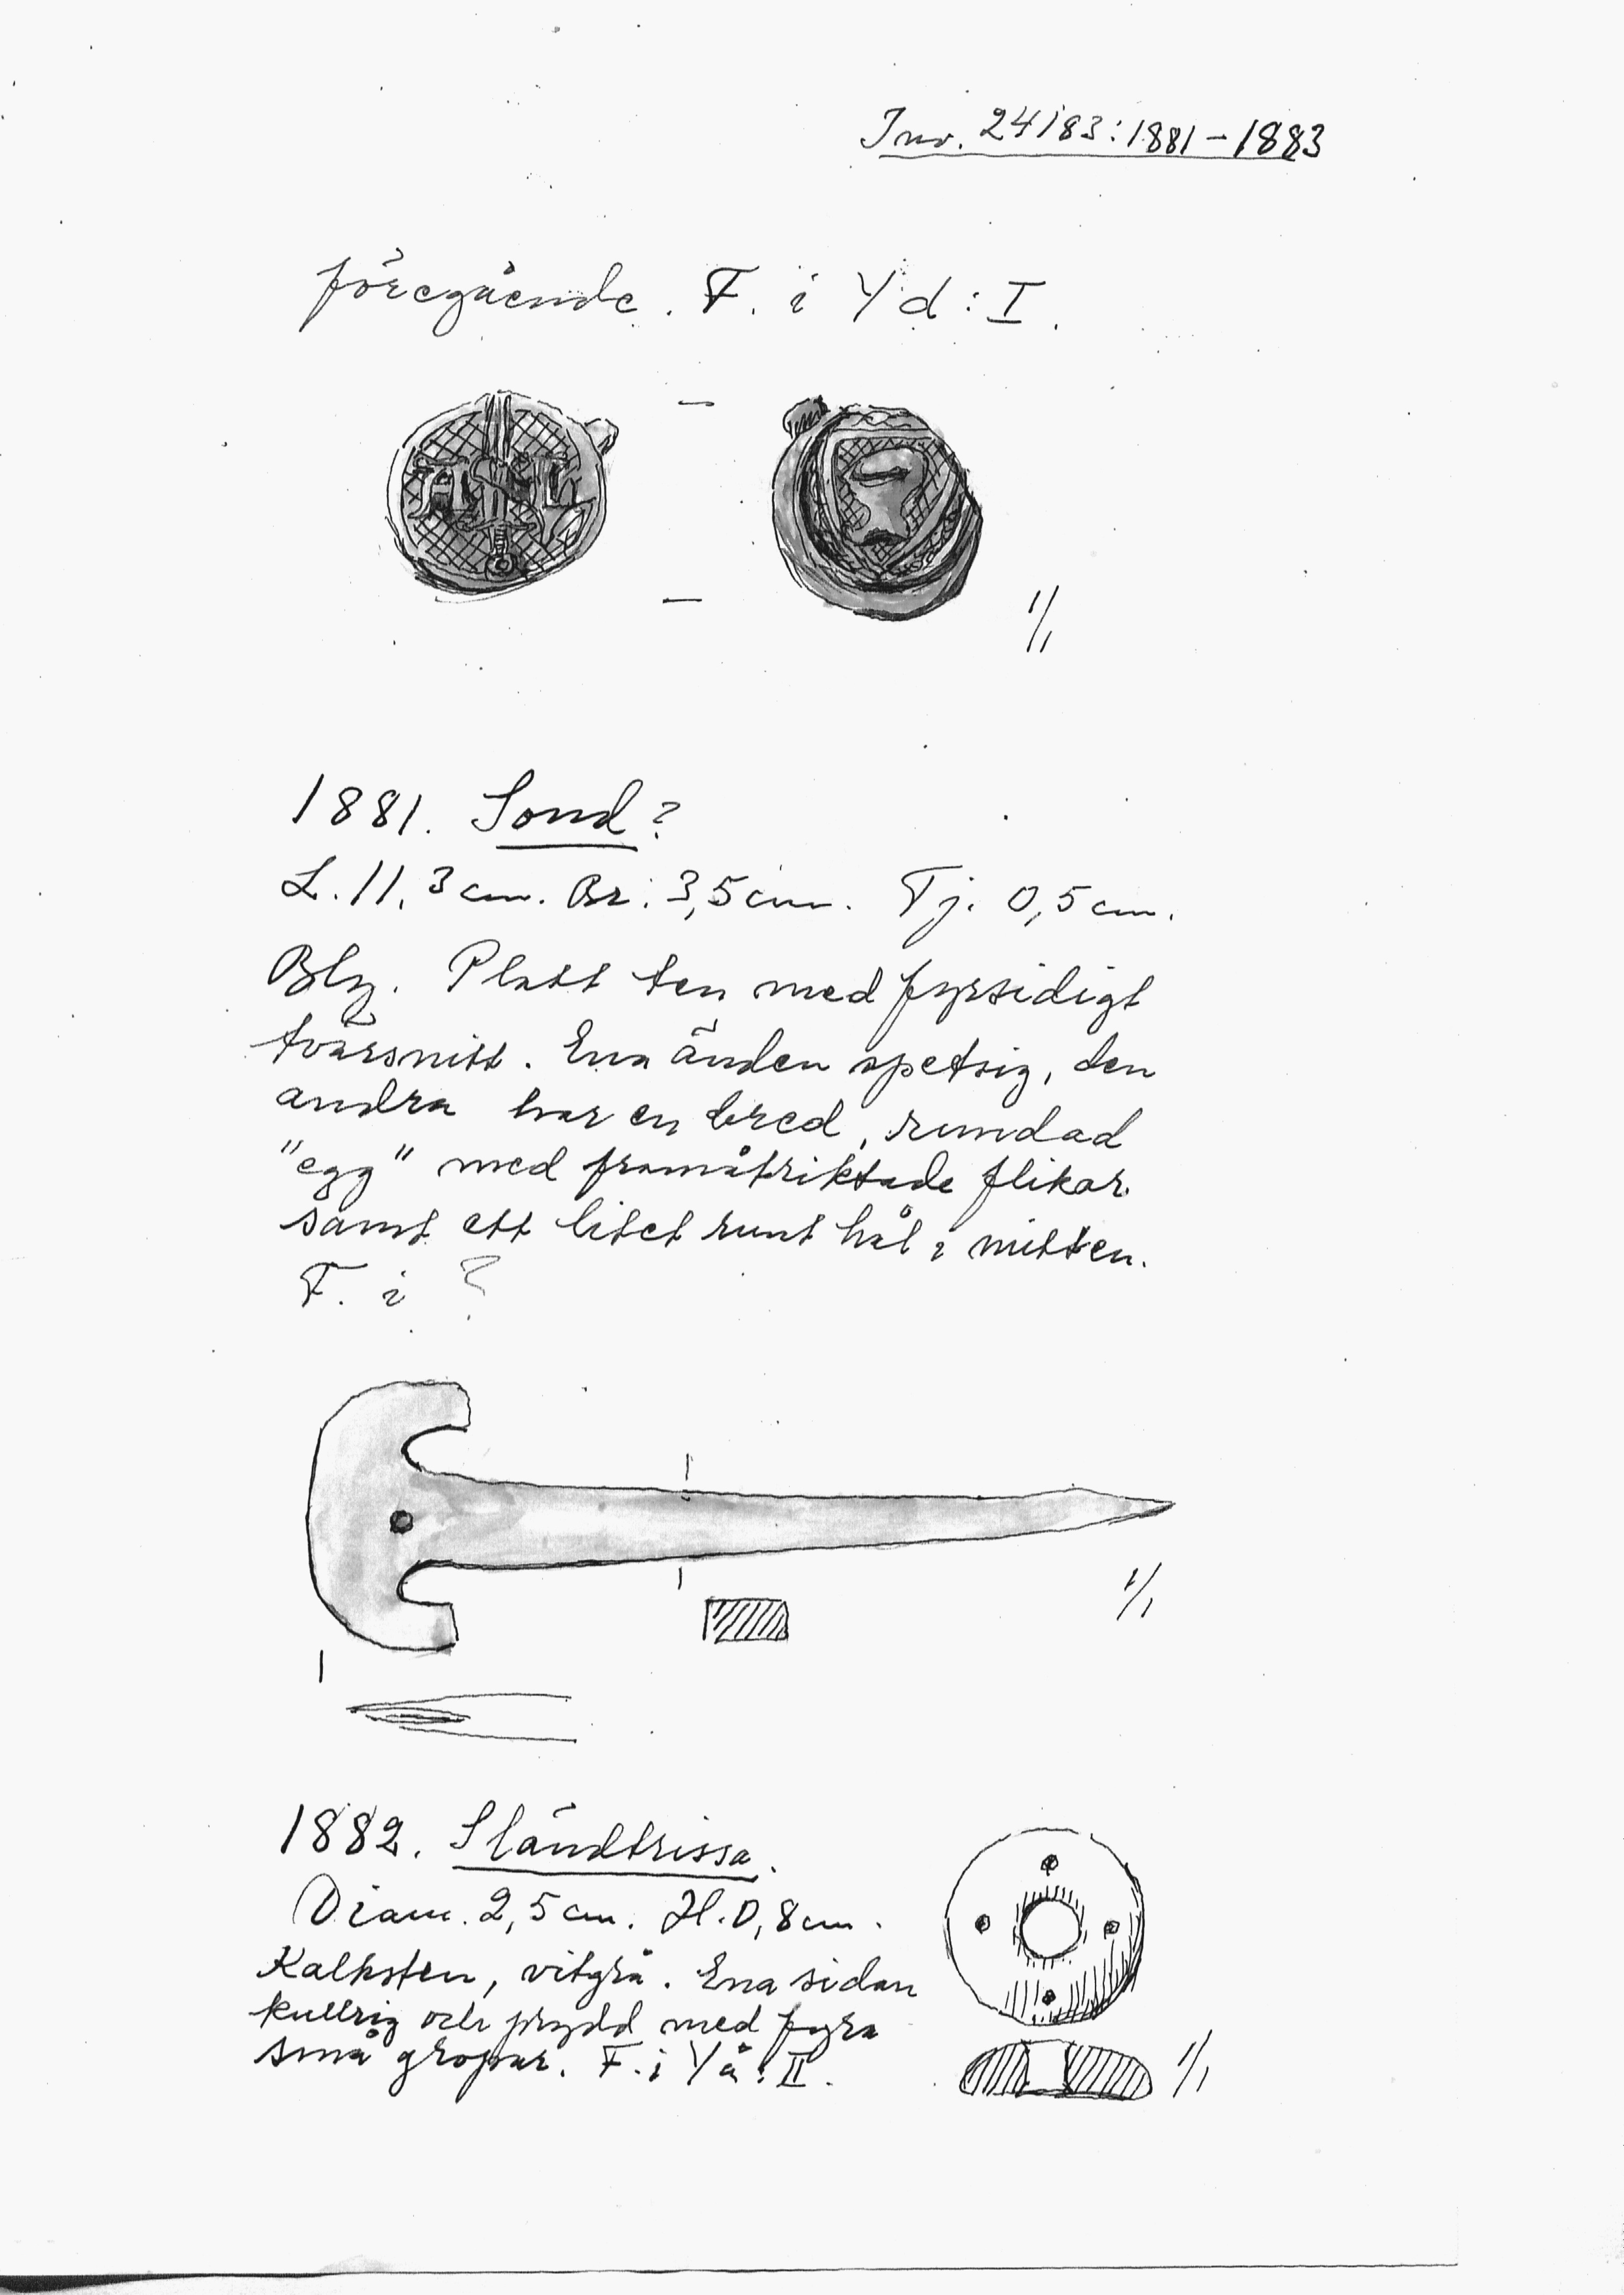 Inv. 24183:1881-1883
föregående. F. i Yd:I.
1/1
1881. Sond?
L. 11,3 cm. Br. 3,5 cm. Tj. 0,5 cm.
Bly. Platt ten med fyrsidigt
tvärsnitt. Ena änden spetsig, den
andra har en bred, rundad
"egg" med framåtriktade flikar
samt ett litet runt hål i mitten.
F. i ?
1/1
1882. Sländtrissa.
Diam. 2,5 cm. H. 0,8 cm.
Kalksten, vitgrå. Ena sidan
kullrig och prydd med fyra
små gropar. F. i Yå:II.
1/1